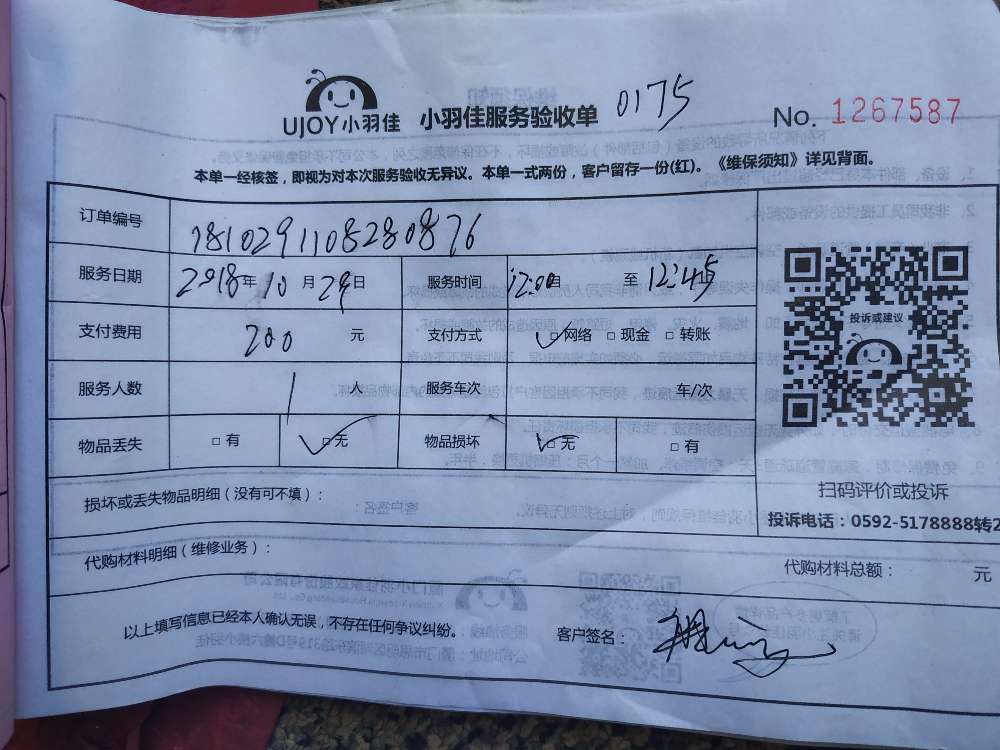 UJOY小羽佳 小羽佳服务验收单 0175
No. 1267587
本单一经核签，即视为对本次服务验收无异议。本单一式两份，客户留存一份(红)。《维保须知》详见背面。
订单编号 18102911085280876
服务日期 2018年10月29日 服务时间 12:00 至 12:45
支付费用 200 元 支付方式 □网络 □现金 □转账
服务人数 1 人 服务车次 车/次
物品丢失 □有 □无 物品损坏 □无 □有
投诉或建议
损坏或丢失物品明细（没有可不填）：
扫码评价或投诉
投诉电话：0592-5178888转2
代购材料明细（维修业务）：
代购材料总额： 元
以上填写信息已经本人确认无误，不存在任何争议纠纷。 客户签名：